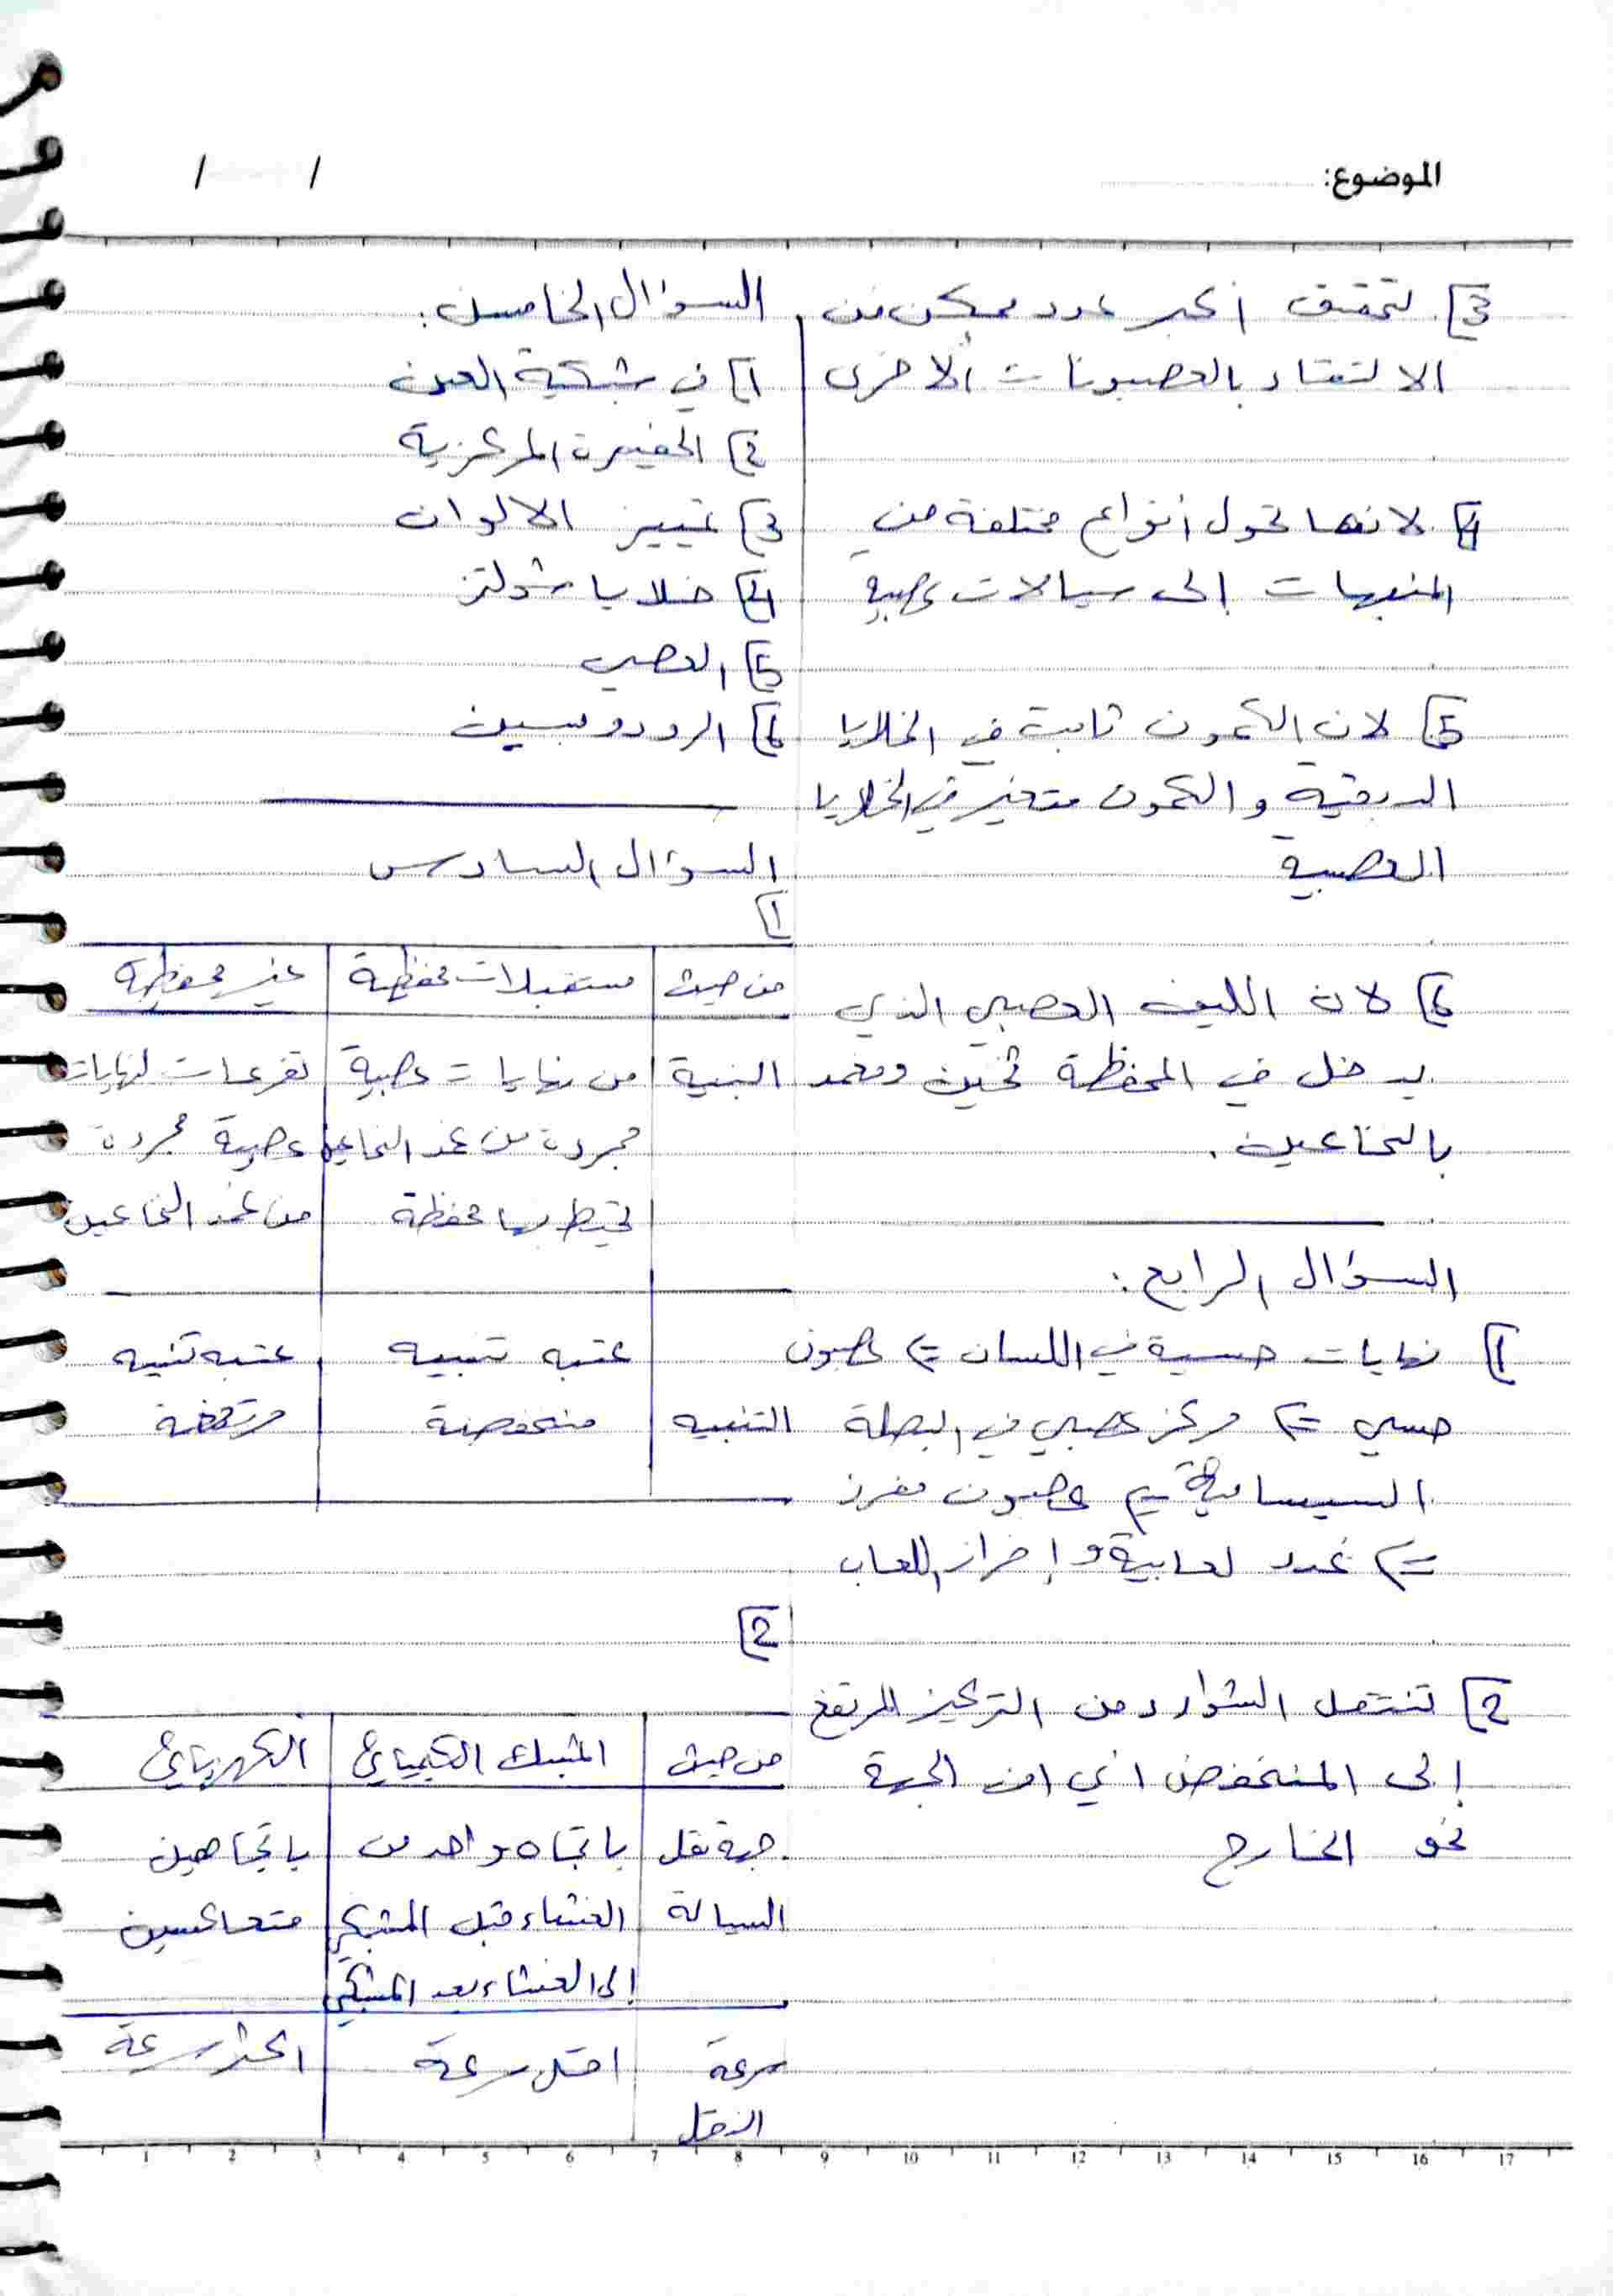 الموضوع:
/ /
3) لتحقيق أكبر عدد ممكن من
الالتقاء بالعصبونات الأخرى
4) لانها تحول أنواع مختلفة من
المنبهات إلى سيالات عصبية
5) لان الكمون ثابت في الخلايا
الدبقية والكمون متغير في الخلايا
العصبية
6) لان الليف العصبي الذي
يدخل في المحفظة ثخين ومغمد
بالنخاعين.
السؤال الرابع:
1) نهايات حسية في اللسان ⇐ عصبون
حسي ⇐ مركز عصبي في البصلة
السيسائية ⇐ عصبون مفرز
⇐ غدد لعابية وإفراز اللعاب
2) تنتقل الشوارد من التركيز المرتفع
إلى المنخفض اي من الجهة
نحو الخارج
السؤال الخامس:
1) في شبكية العين
2) الحفيرة المركزية
3) تمييز الالوان
4) خلايا شولتز
5) العصبي
6) الرودوبسين
السؤال السادس
1)
من حيث مستقبلات محفظية غير محفظية
البنية من نهايات عصبية تفرعات لنهايات
مجردة من غمد النخاعين عصبية مجردة
تحيط بها محفظة من غمد النخاعين
عتبه تنبيه عتبه تنبيه
التنبيه منخفضة مرتفعة
2)
من حيث المشبك الكيميائي الكهربائي
جهة نقل باتجاه واحد من باتجاهين
السيالة الغشاء قبل المشبكي متعاكسين
إلى الغشاء بعد المشبكي
سرعة اقل سرعة اكثر سرعة
النقل
1 2 3 4 5 6 7 8 9 10 11 12 13 14 15 16 17